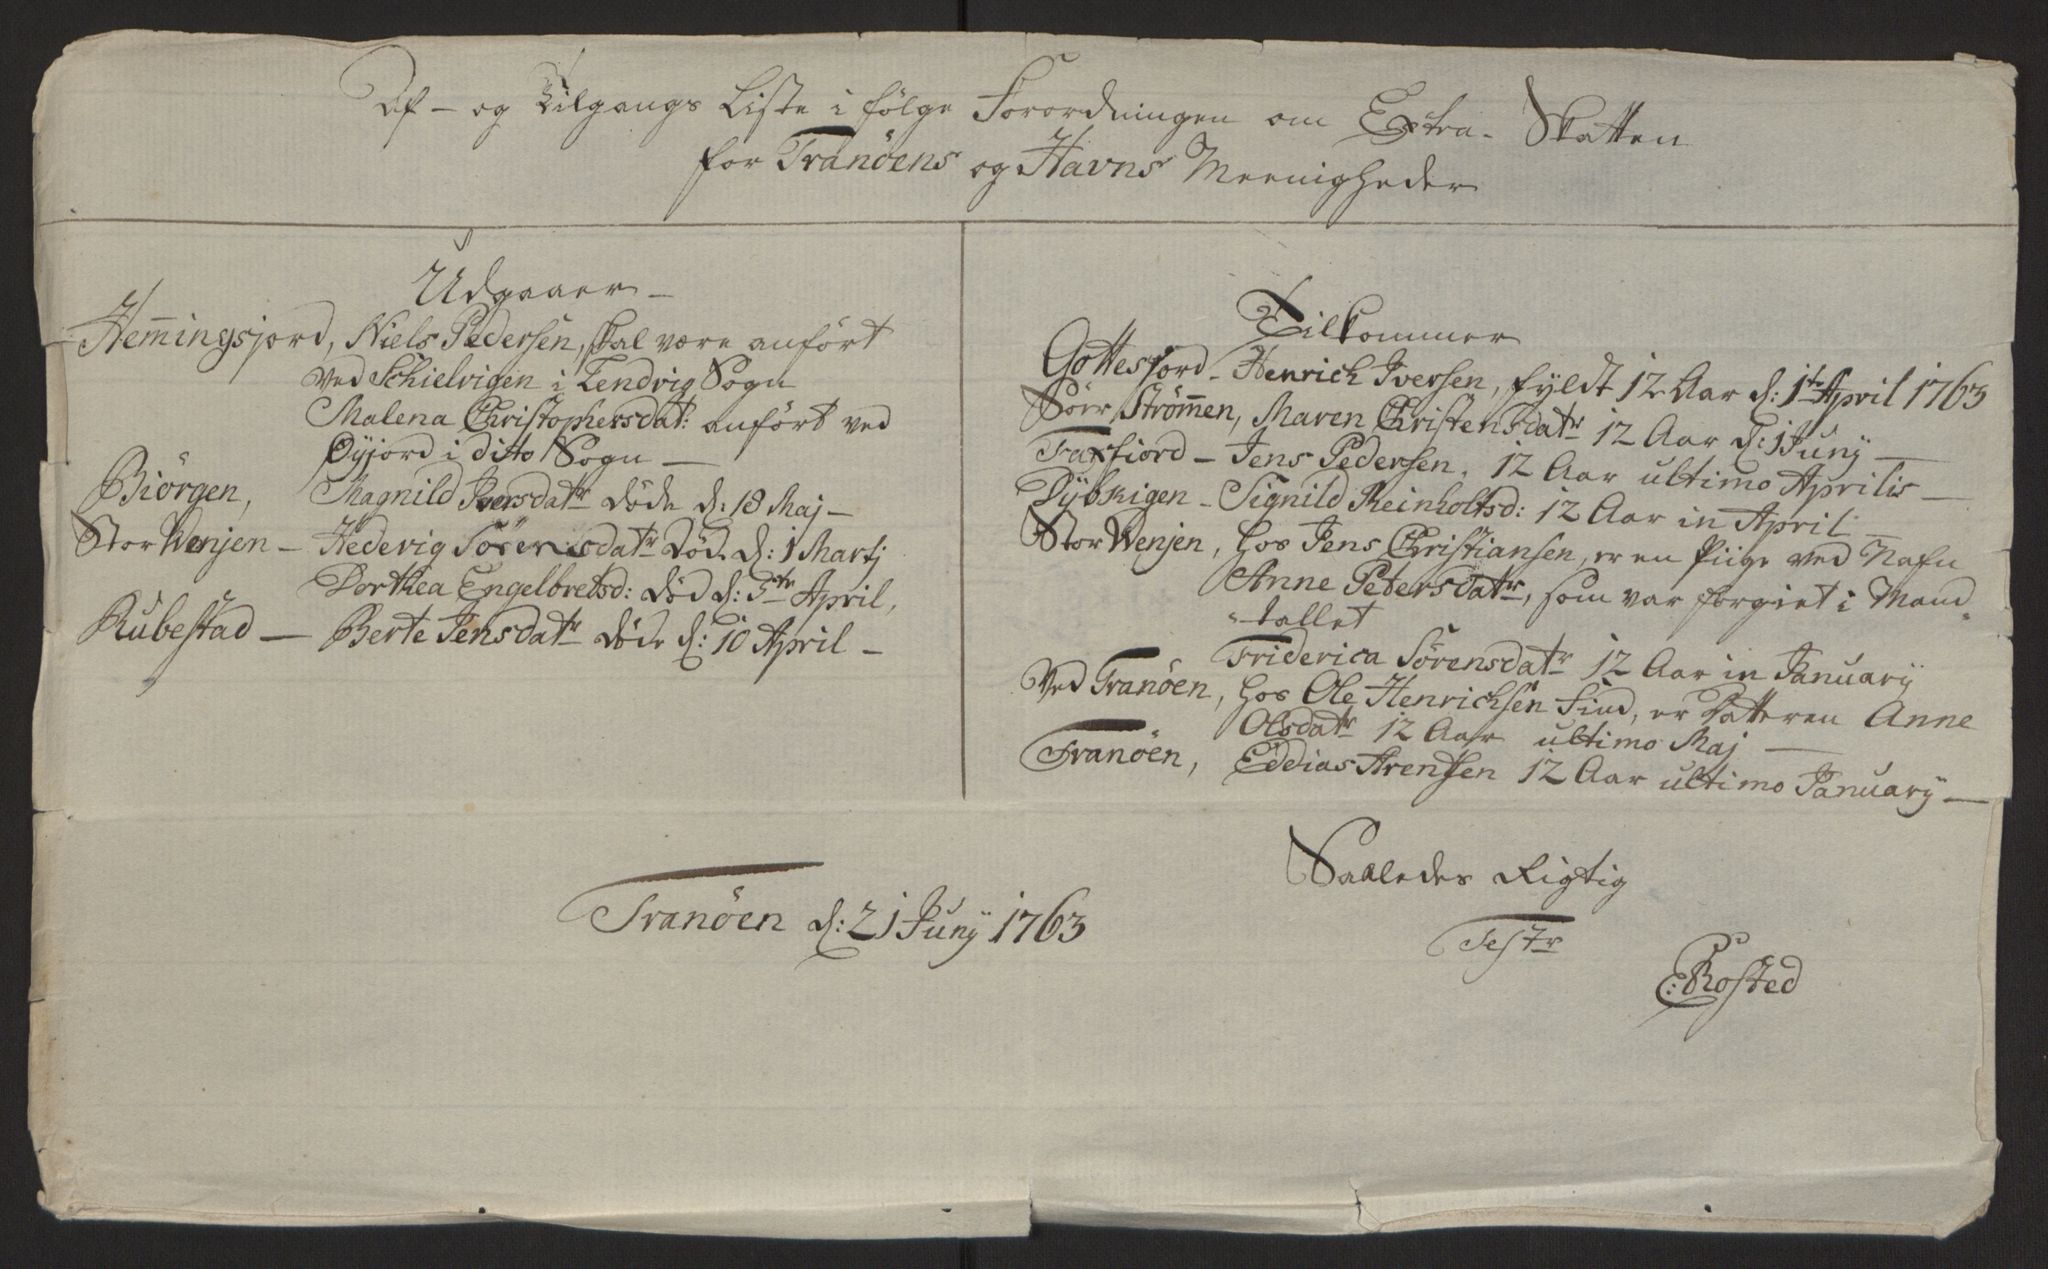 Af- og Tilgangs Liste i følge Forordningen om Extra- Skatten
for Tranöens og Havns Meenigheder
Udgaaer -
Hem̄ingsjord, Niels Pedersen, skal være anfört
ved Schielvigen i Lendvig Sogn
Malena Christophersdat: anført ved
Øyjord i ditto Sogn —
Biörgen, Magnild Iversdatr døde d: 18 Maj -
Stor Wenjen - Hedevig Sörensdatr død. d: 1 Martj
Dorthea Engelbretsd: død d: 3te April,
Rubestad — Berte Jensdatr døde d: 10 April -
Tilkommer
Gottesjord - Henrich Iversen, fyldt 12 Aar d: 1te April 1763
Söer Ström̄en, Maren Christensdatr 12 Aar d: 1 Juny —
Faxfiord - Jens Pedersen, 12 Aar ultimo Aprilis —
Dybvigen - Signild Reinholtsd: 12 Aar in April -
Stor Wenjen, hos Jens Christiansen, er en Piige ved Nafn
Anne Petersdatr, som var forgiet i Mand-
-tallet
Friderica Sörensdatr 12 Aar in January
Ved Tranöen, hos Ole Henrichsen Find, er Datteren Anne
Olsdatr 12 Aar ultimo Maj —
Tranöen, Eddias Arentsen 12 Aar ultimo January —
Saaledes Rigtig
Tranöen d: 21 Juny 1763
Testr
C: Rosted